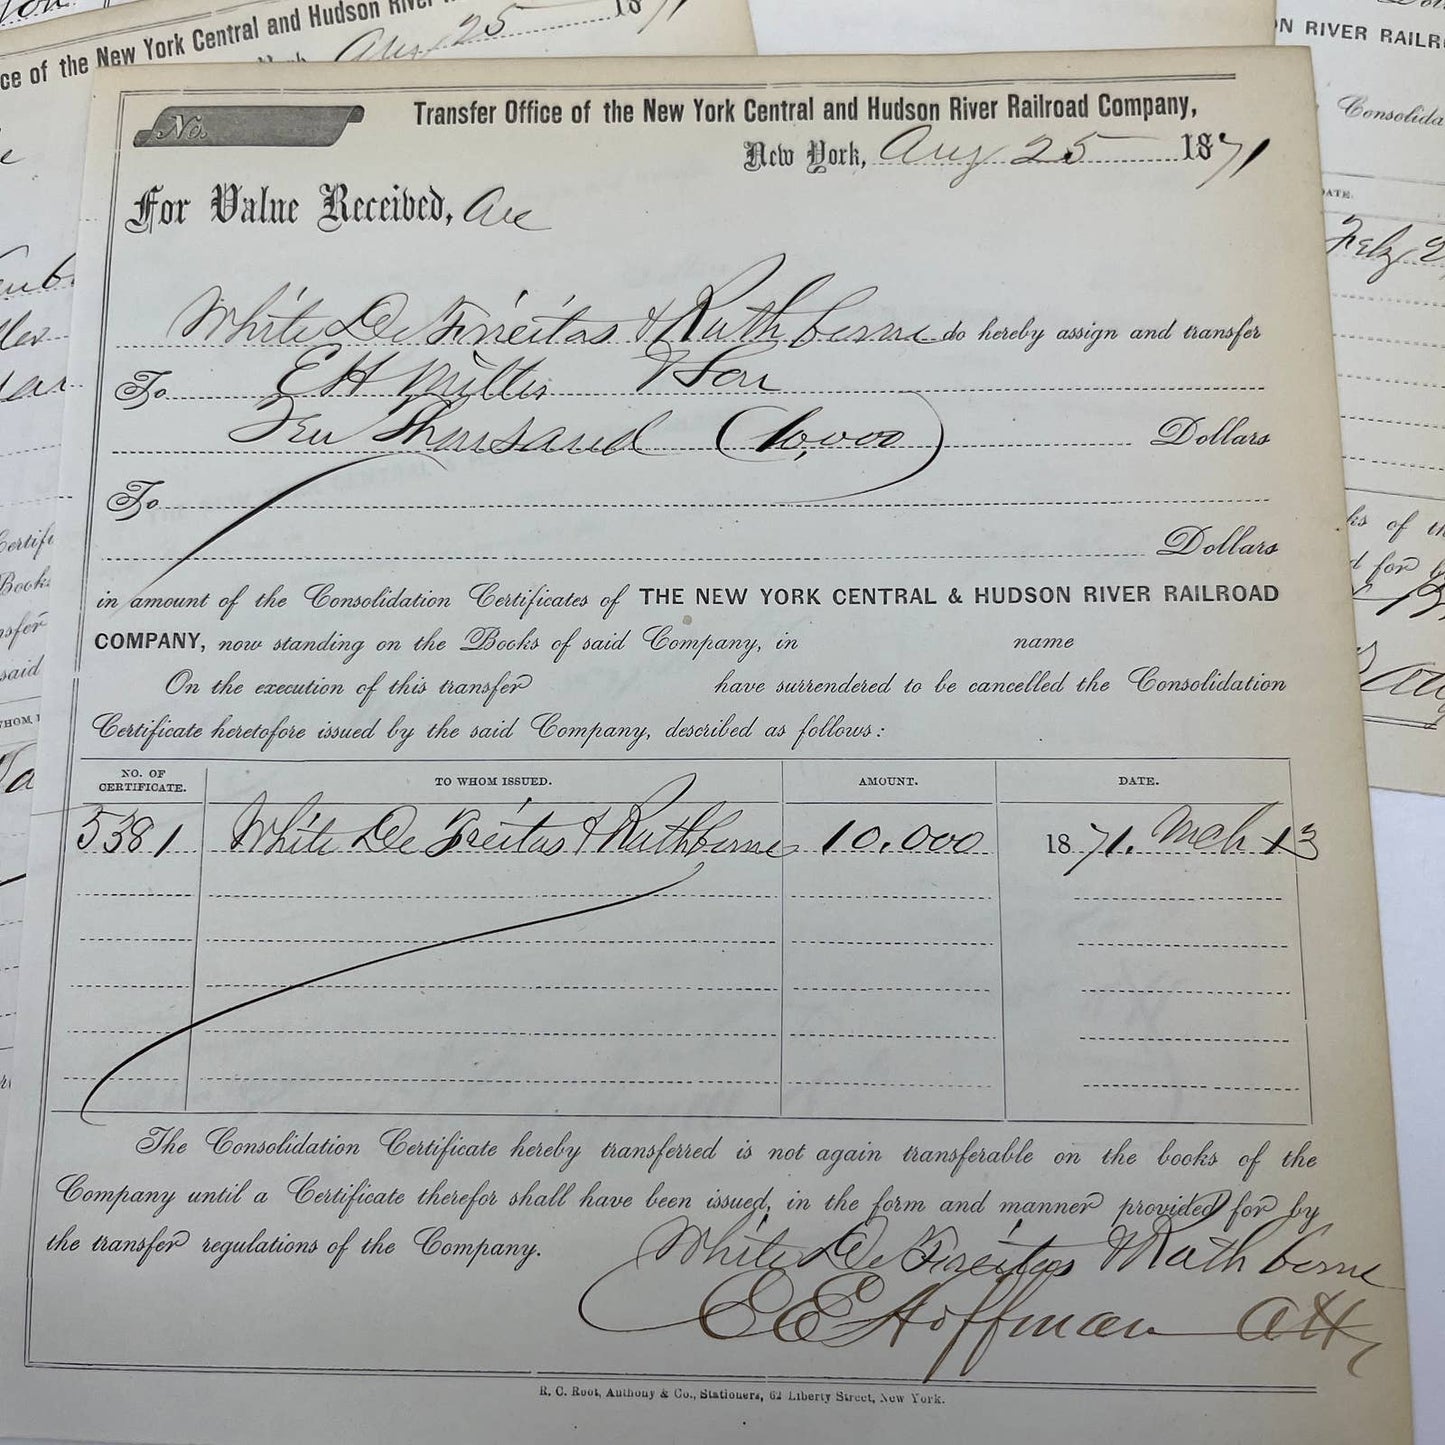 ce of the New York Central and Hudson River
Aug 25 1871
N RIVER RAILR
Consolida
DATE.
No.
Transfer Office of the New York Central and Hudson River Railroad Company,
New York, Aug 25 1871
For Value Received,
White De Freitas & Rathborne do hereby assign and transfer
To E H Miller & Son
Ten Thousand (10,000) Dollars
To
Dollars
in amount of the Consolidation Certificates of THE NEW YORK CENTRAL & HUDSON RIVER RAILROAD
COMPANY, now standing on the Books of said Company, in name
On the execution of this transfer have surrendered to be cancelled the Consolidation
Certificate heretofore issued by the said Company, described as follows:
NO. OF CERTIFICATE. TO WHOM ISSUED. AMOUNT. DATE.
5381 White De Freitas & Rathborne 10.000 1871. Mch 13
The Consolidation Certificate hereby transferred is not again transferable on the books of the
Company until a Certificate therefor shall have been issued, in the form and manner provided for by
the transfer regulations of the Company.
White De Freitas & Rathborne
E E Hoffman Atty
R. C. Root, Anthony & Co., Stationers, 62 Liberty Street, New York.